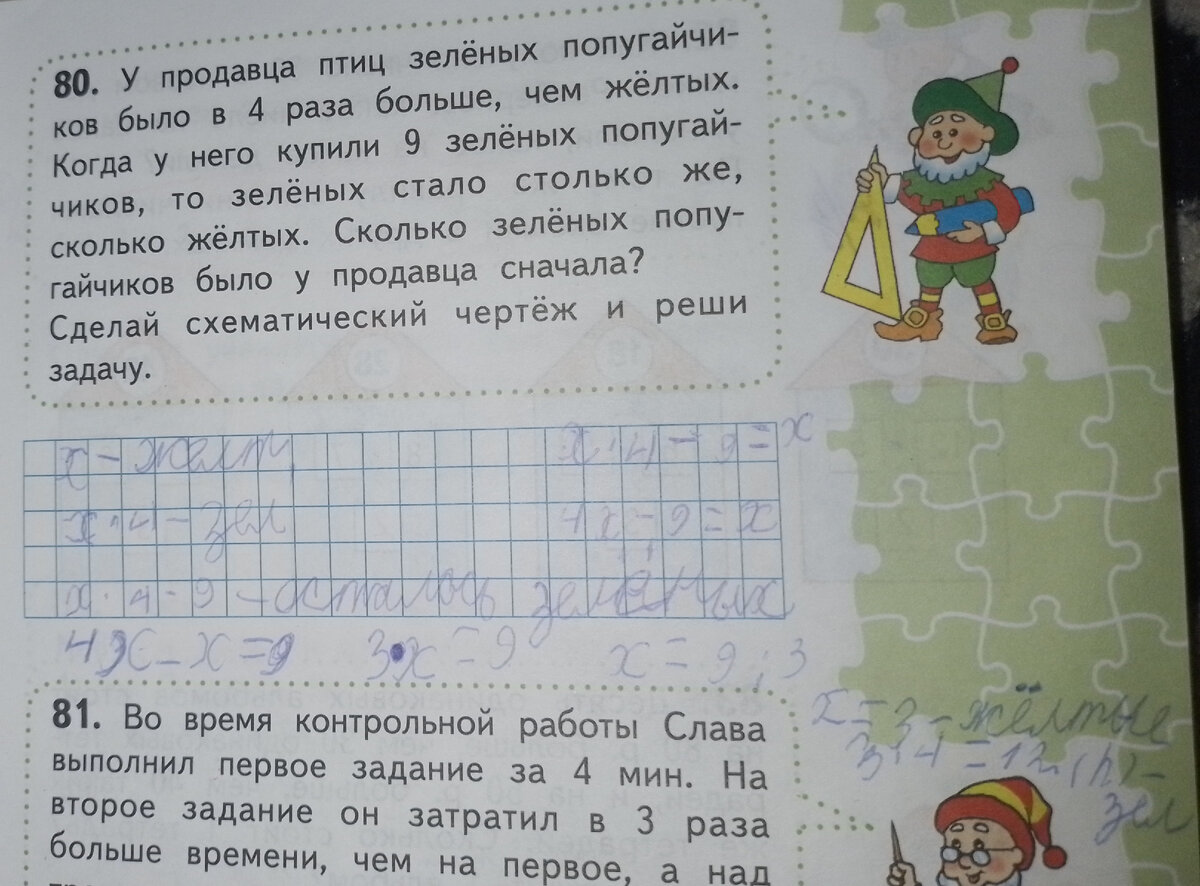 80. У продавца птиц зелёных попугайчи-
ков было в 4 раза больше, чем жёлтых.
Когда у него купили 9 зелёных попугай-
чиков, то зелёных стало столько же,
сколько жёлтых. Сколько зелёных попу-
гайчиков было у продавца сначала?
Сделай схематический чертёж и реши
задачу.
х - желт
х · 4 - 9 = х
х · 4 - зел
4х - 9 = х
х · 4 - 9 - осталось зелёных
4х - х = 9 3 · х = 9 х = 9 : 3
х = 3 - жёлтые
3 · 4 = 12 (п) -
зел
81. Во время контрольной работы Слава
выполнил первое задание за 4 мин. На
второе задание он затратил в 3 раза
больше времени, чем на первое, а над